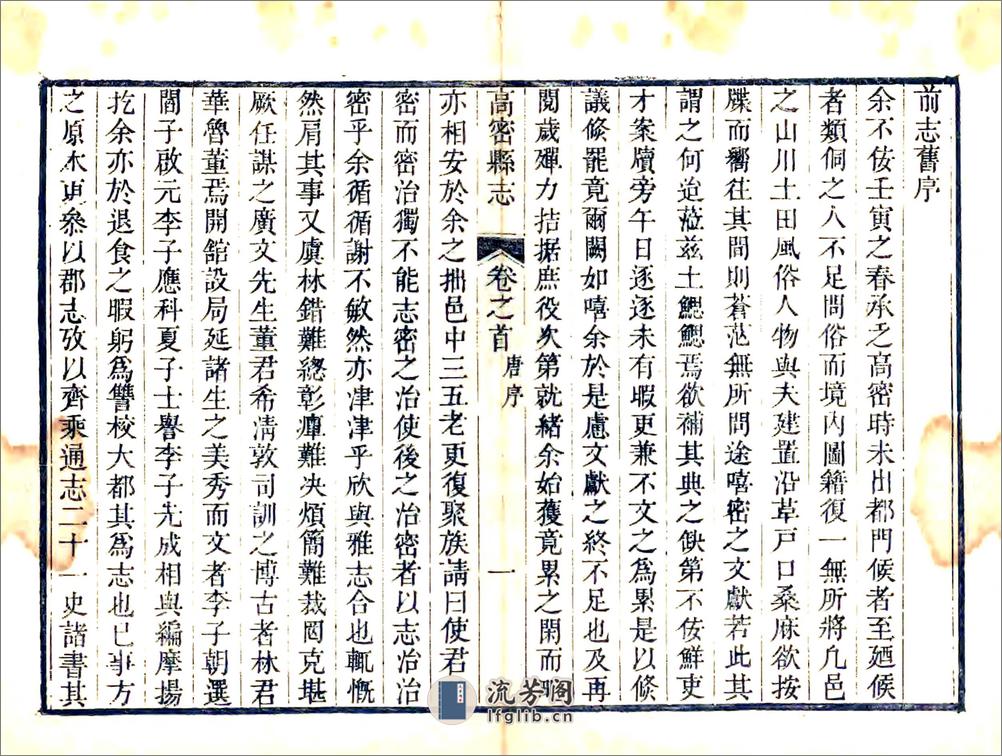 前志舊序
余不佞壬寅之春承乏高密時未出都門候者至廼候
者類侗之人不足問俗而境內圖籍復一無所將凢邑
之山川土田風俗人物與夫建置沿革戸口桑麻欲按
牒而嚮往其間則蒼茫無所問途嘻密之文獻若此其
謂之何迨蒞兹土鰓鰓焉欲補其典之缺第不佞鮮吏
才案牘旁午日逐逐未有暇更兼不文之為累是以條
議條罷竟爾闕如嘻余於是慮文獻之終不足也及再
閱歲殫力拮据庶役次第就緒余始獲竟累之閑而
高密縣志
卷之首
唐序
一
亦相安於余之拙邑中三五老更復聚族請曰使君
密而密冶獨不能志密之冶使後之冶密者以志冶冶
密乎余循循謝不敏然亦津津乎欣與雅志合也輒慨
然肩其事又虞林錯難總彰癉難决煩簡難裁罔克堪
厥任謀之廣文先生董君希清敦司訓之博古者林君
華魯董焉開舘設局延諸生之美秀而文者李子朝選
閻子啟元李子應科夏子士譽李子先成相與編摩揚
扢余亦於退食之暇躬為讐校大都其為志也巳事方
之原本更參以郡志攷以齊乘通志二十一史諸書其
流芳阁
lfglib.cn